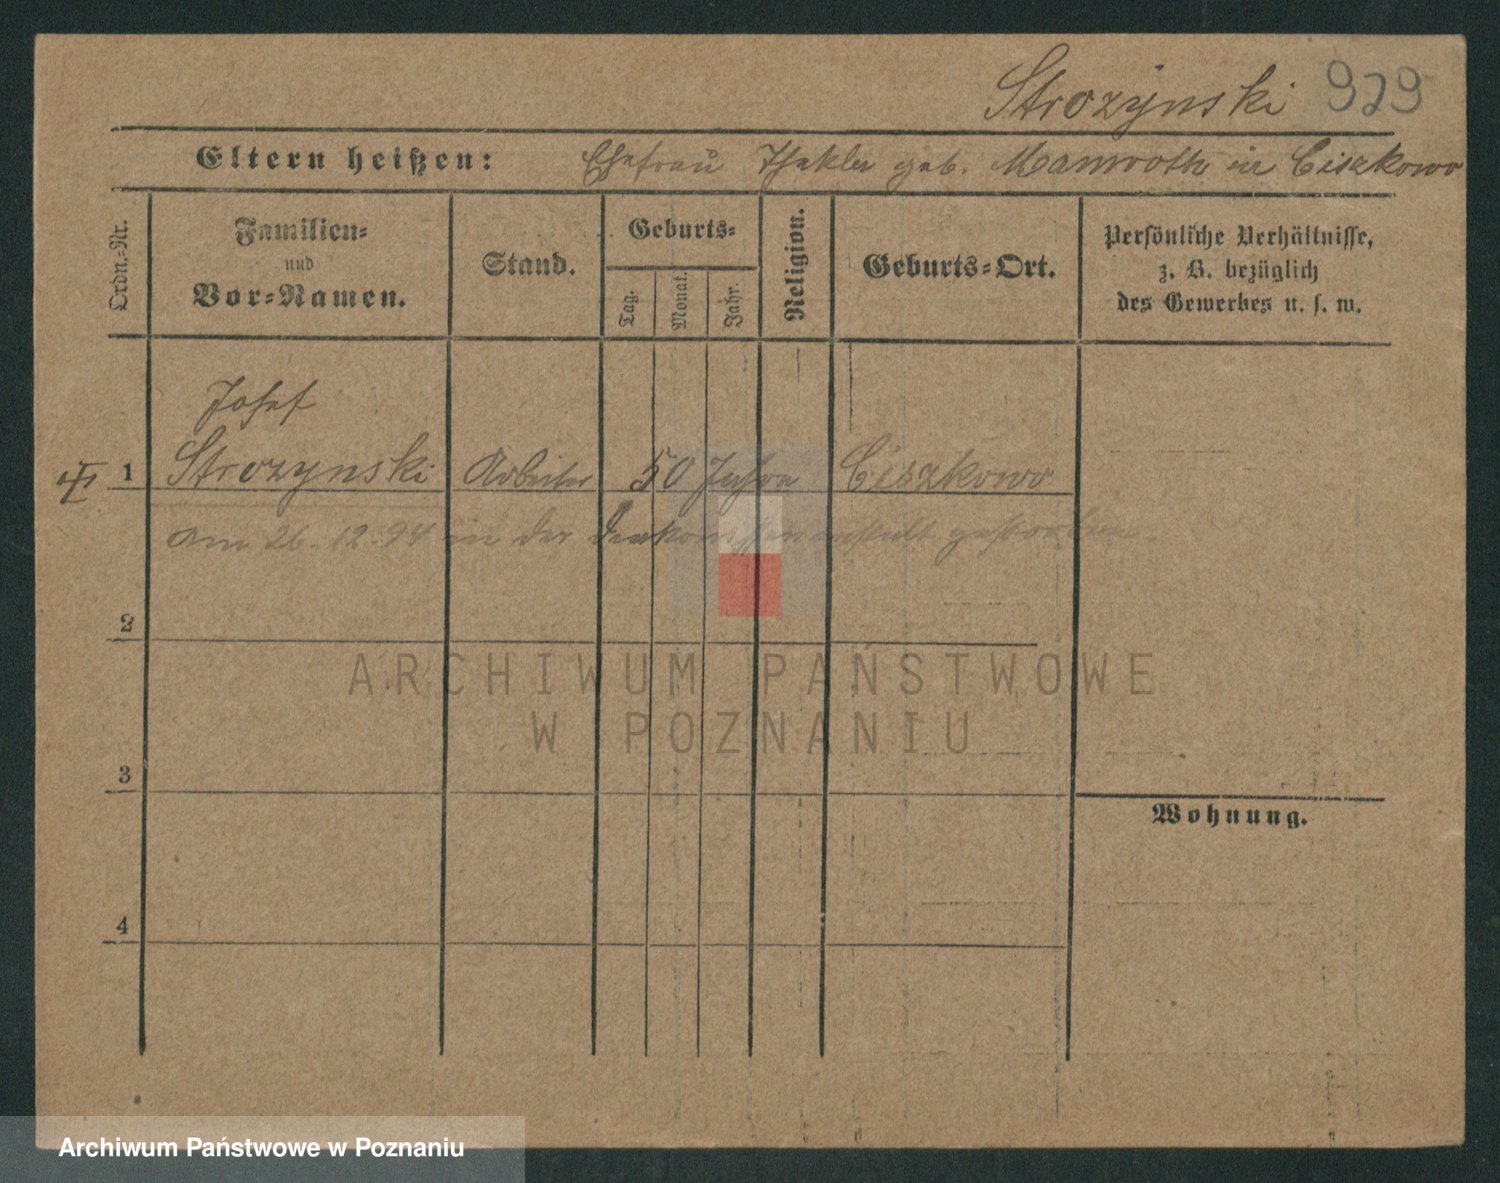 Strozynski 929
Eltern heißen: Ehefrau Thekla geb. Mamroth in Ciszkowo
Ordn.-Nr.
Familien- und Vor-Namen.
Stand.
Geburts-
Tag.
Monat.
Jahr.
Religion.
Geburts-Ort.
Persönliche Verhältnisse,
z. B. bezüglich
des Gewerbes u. s. w.
Josef
1 Strozynski Arbeiter 50 Jahre Ciszkowo
am 26.12.94 in der Deakonissenanstalt gestorben.
2
ARCHIWUM PAŃSTWOWE
W POZNANIU
3
Wohnung.
4
Archiwum Państwowe w Poznaniu